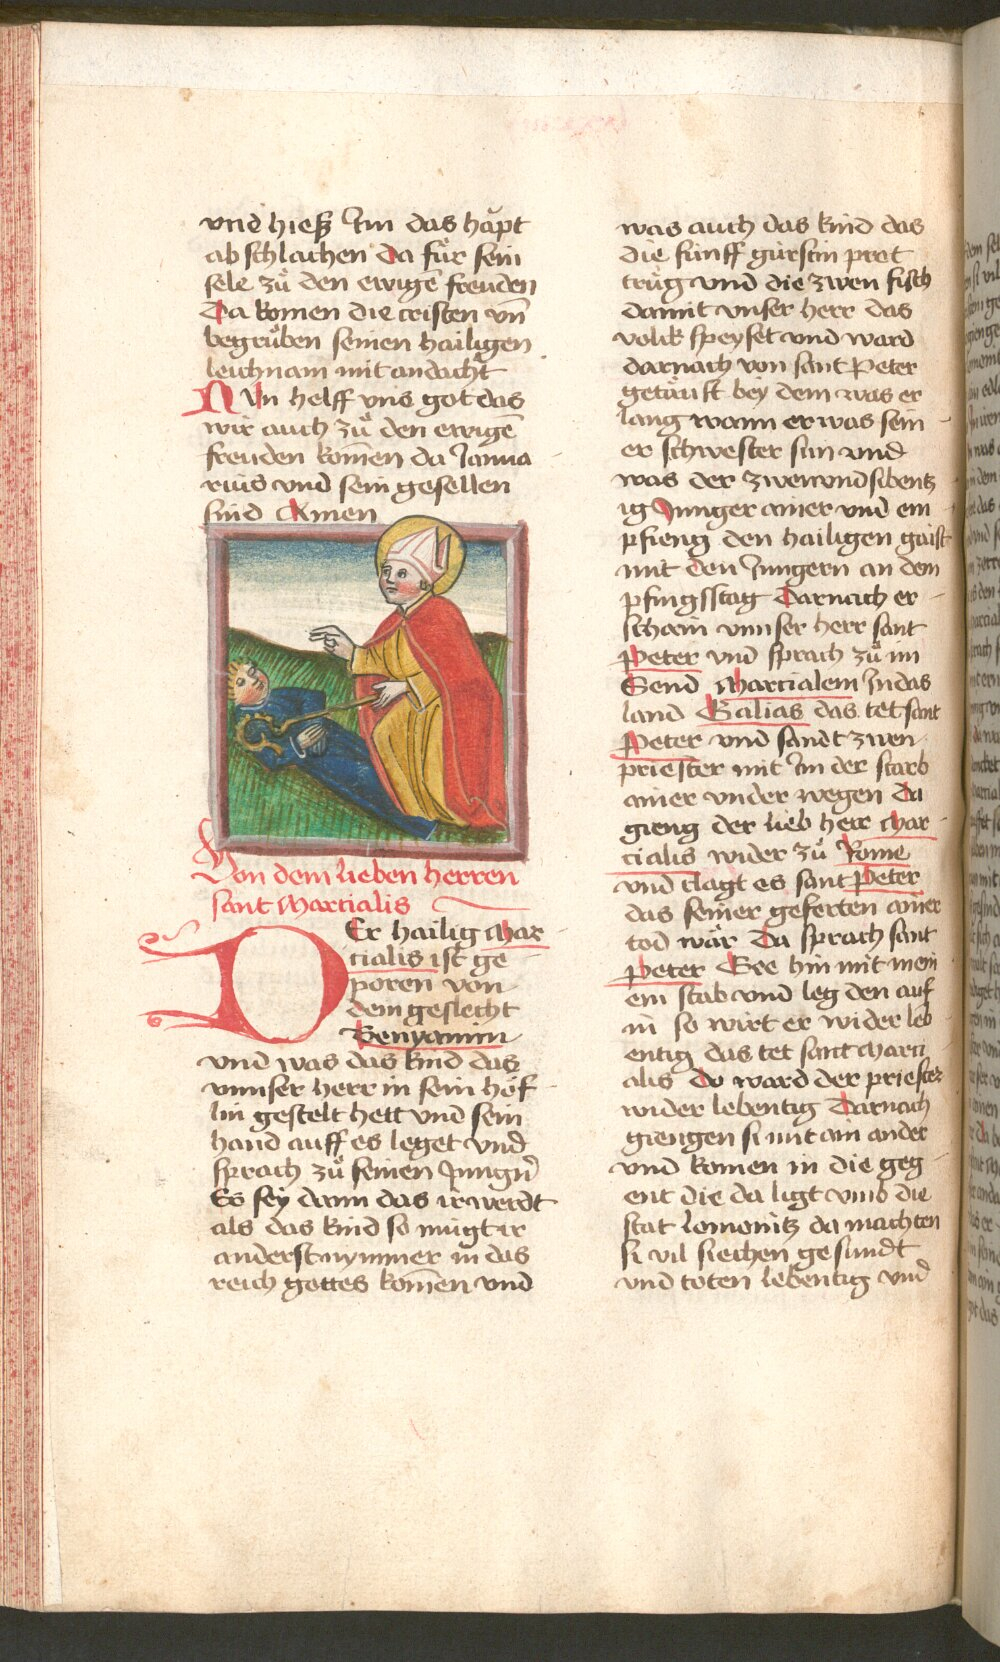 vnd hieß Im das haͮpt
ab schlachen da fuͤr sein
sele zuͦ den ewigē freuden
Da komen die cristen vn̄
begruͦben seinen hailigen
leichnam mit andacht
NVn helff vns got das
wir auch zuͦ den ewigē
freuden kom̄en da Janua
rius vnd sein gesellen
sind Amen
Von dem lieben herren
sant Martialis
DEr hailig Mar
cialis ist ge
poren von
dem geslecht
Benyamin
vnd was das kind das
vnnser herr in sein hof
lin gestelt hett vnd sein
hand auff es leget vnd
sprach zuͦ seinen Jungn̄
Es sey dann das ir werdt
als das kind so mügt ir
anderst nymmer in das
reich gottes kom̄en vnd
was auch das kind das
die fünff gürstin prot
truͦg vnd die zwen fisch
damit vnser herr das
volck speyset vnd ward
darnach von sant Peter
getaufft bey dem was er
lang wann er was sein
er schwester sun vnd
was der zwenvndsibentz
ig Junger ainer vnd em
pfieng den hailigen gaist
mit den Jungern an dem
pfingsstag Darnach er
schain vnnser herr sant
Peter vnd sprach zuͦ im
Send Martialem In das
land Galias das tet sant
Peter vnd sandt zwen
priester mit Im der starb
ainer vnder wegen da
gieng der lieb herr Mar
cialis wider zuͦ Rome
vnd clagt es sant Peter
das seiner geferten ainer
tod waͤr Da sprach sant
Peter Gee hin mit mein
em stab vnd leg den auf
in so wirt er wider leb
entig das tet sant Marti
alis do ward der priester
wider lebentig Darnach
giengen si mit ain ander
vnd komen in die geg
ent die da ligt vmb die
stat lomonitz da machten
si vil siechen gesundt
vnd toten lebentig vnd